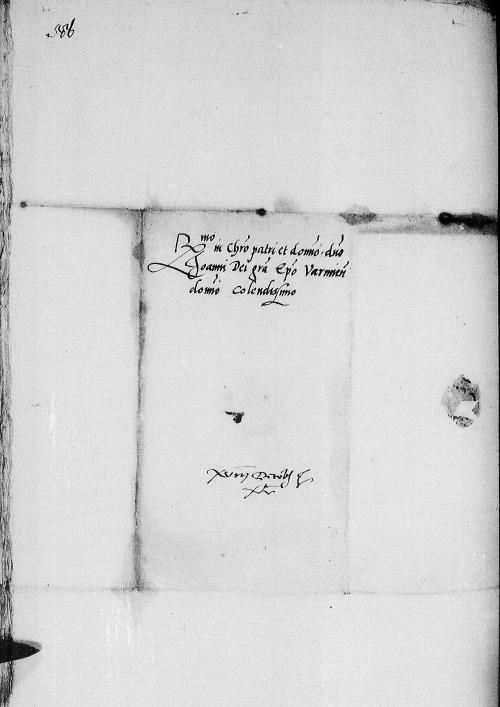 386
Rmo in Chro patri et domino, dno
Joanni Dei gra Epo Varmien
domino Colendissimo
XVIII